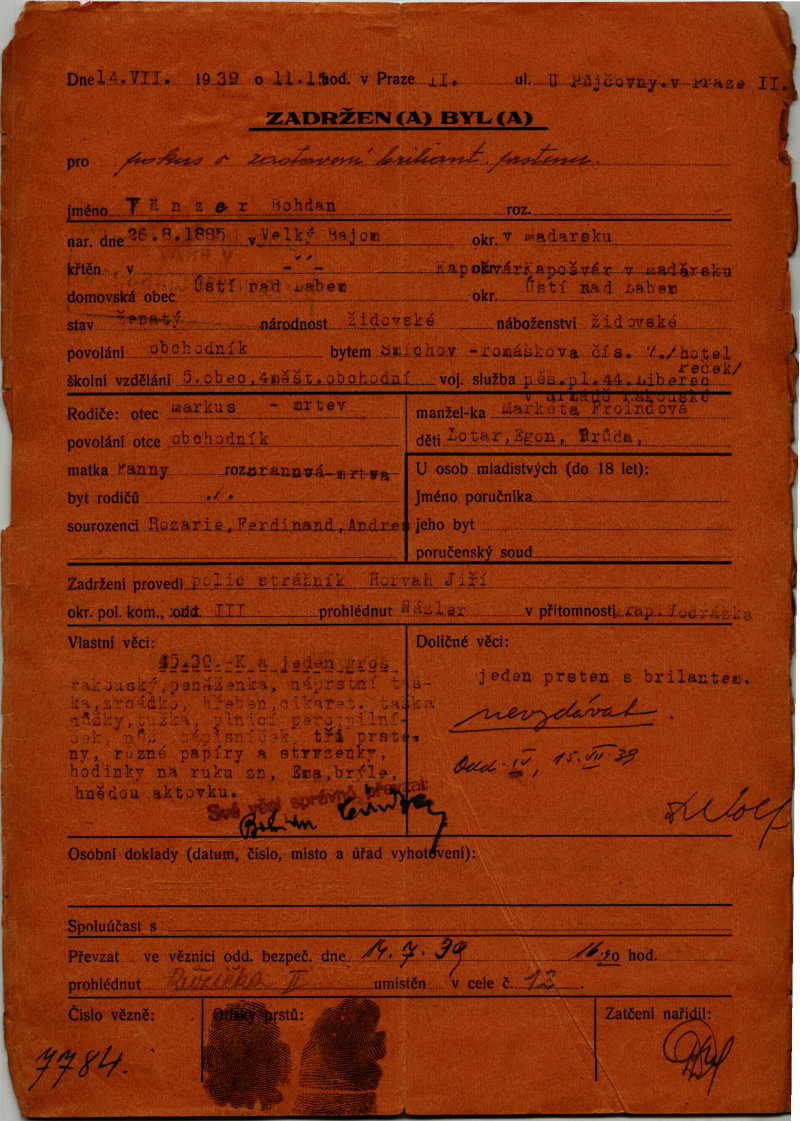 Dne 14.VII. 1939 o 11.15 hod. v Praze II. ul. U Půjčovny.v Praze II.
ZADRŽEN(A) BYL(A)
pro pokus o zastavení briliant. prstenu.
jméno Tänzer Bohdan roz.
nar. dne 26.8.1885 v Velký Bajom okr. v Maďarsku
křtěn v -"- okr. Kapošvár v Maďarsku
domovská obec Ústí nad Labem okr. Ústí nad Labem
stav ženatý národnost židovské náboženství židovské
povolání obchodník bytem Smíchov -Tomáškova čís. 7./hotel
školní vzdělání 5.obec,4měšt.obchodní voj. služba pěš.pl.44.Liberec
v armádě rakouské
Rodiče: otec Markus - mrtev manžel-ka Marketa Froindová
povolání otce obchodník děti Lotar,Egon, Trůda,
matka Fanny roz. mrtva
byt rodičů ./.
U osob mladistvých (do 18 let):
Jméno poručníka
sourozenci Rozarie,Ferdinand,Andre jeho byt
poručenský soud
Zadržení provedl polic strážník Horvah Jiří
okr. pol. kom., odd. III prohlédnut v přítomnosti Vodrážka
Vlastní věci:
45.30.-K a jeden groš
rakouský,peněženka, náprstní taš-
ka,zrcádko, hřeben,cikaret. taška
nůžky,tužka, plnicí pero,pilní-
ček, nůž zápisníček, tři prste-
ny, různé papíry a stvrzenky,
hodinky na ruku zn, Ema,brýle,
hnědou aktovku.
Své věci správně převzal:
Doličné věci:
jeden prsten s brilantem.
nevydávat.
Odd. IV, 15. VII. 39
Osobní doklady (datum, číslo, místo a úřad vyhotovení):
Spoluúčast s
Převzat ve věznici odd. bezpeč. dne 14. 7. 39 hod.
prohlédnut Růžička II umístěn v cele č. 12.
Číslo vězně:
7784.
Otisky prstů:
Zatčení nařídil: